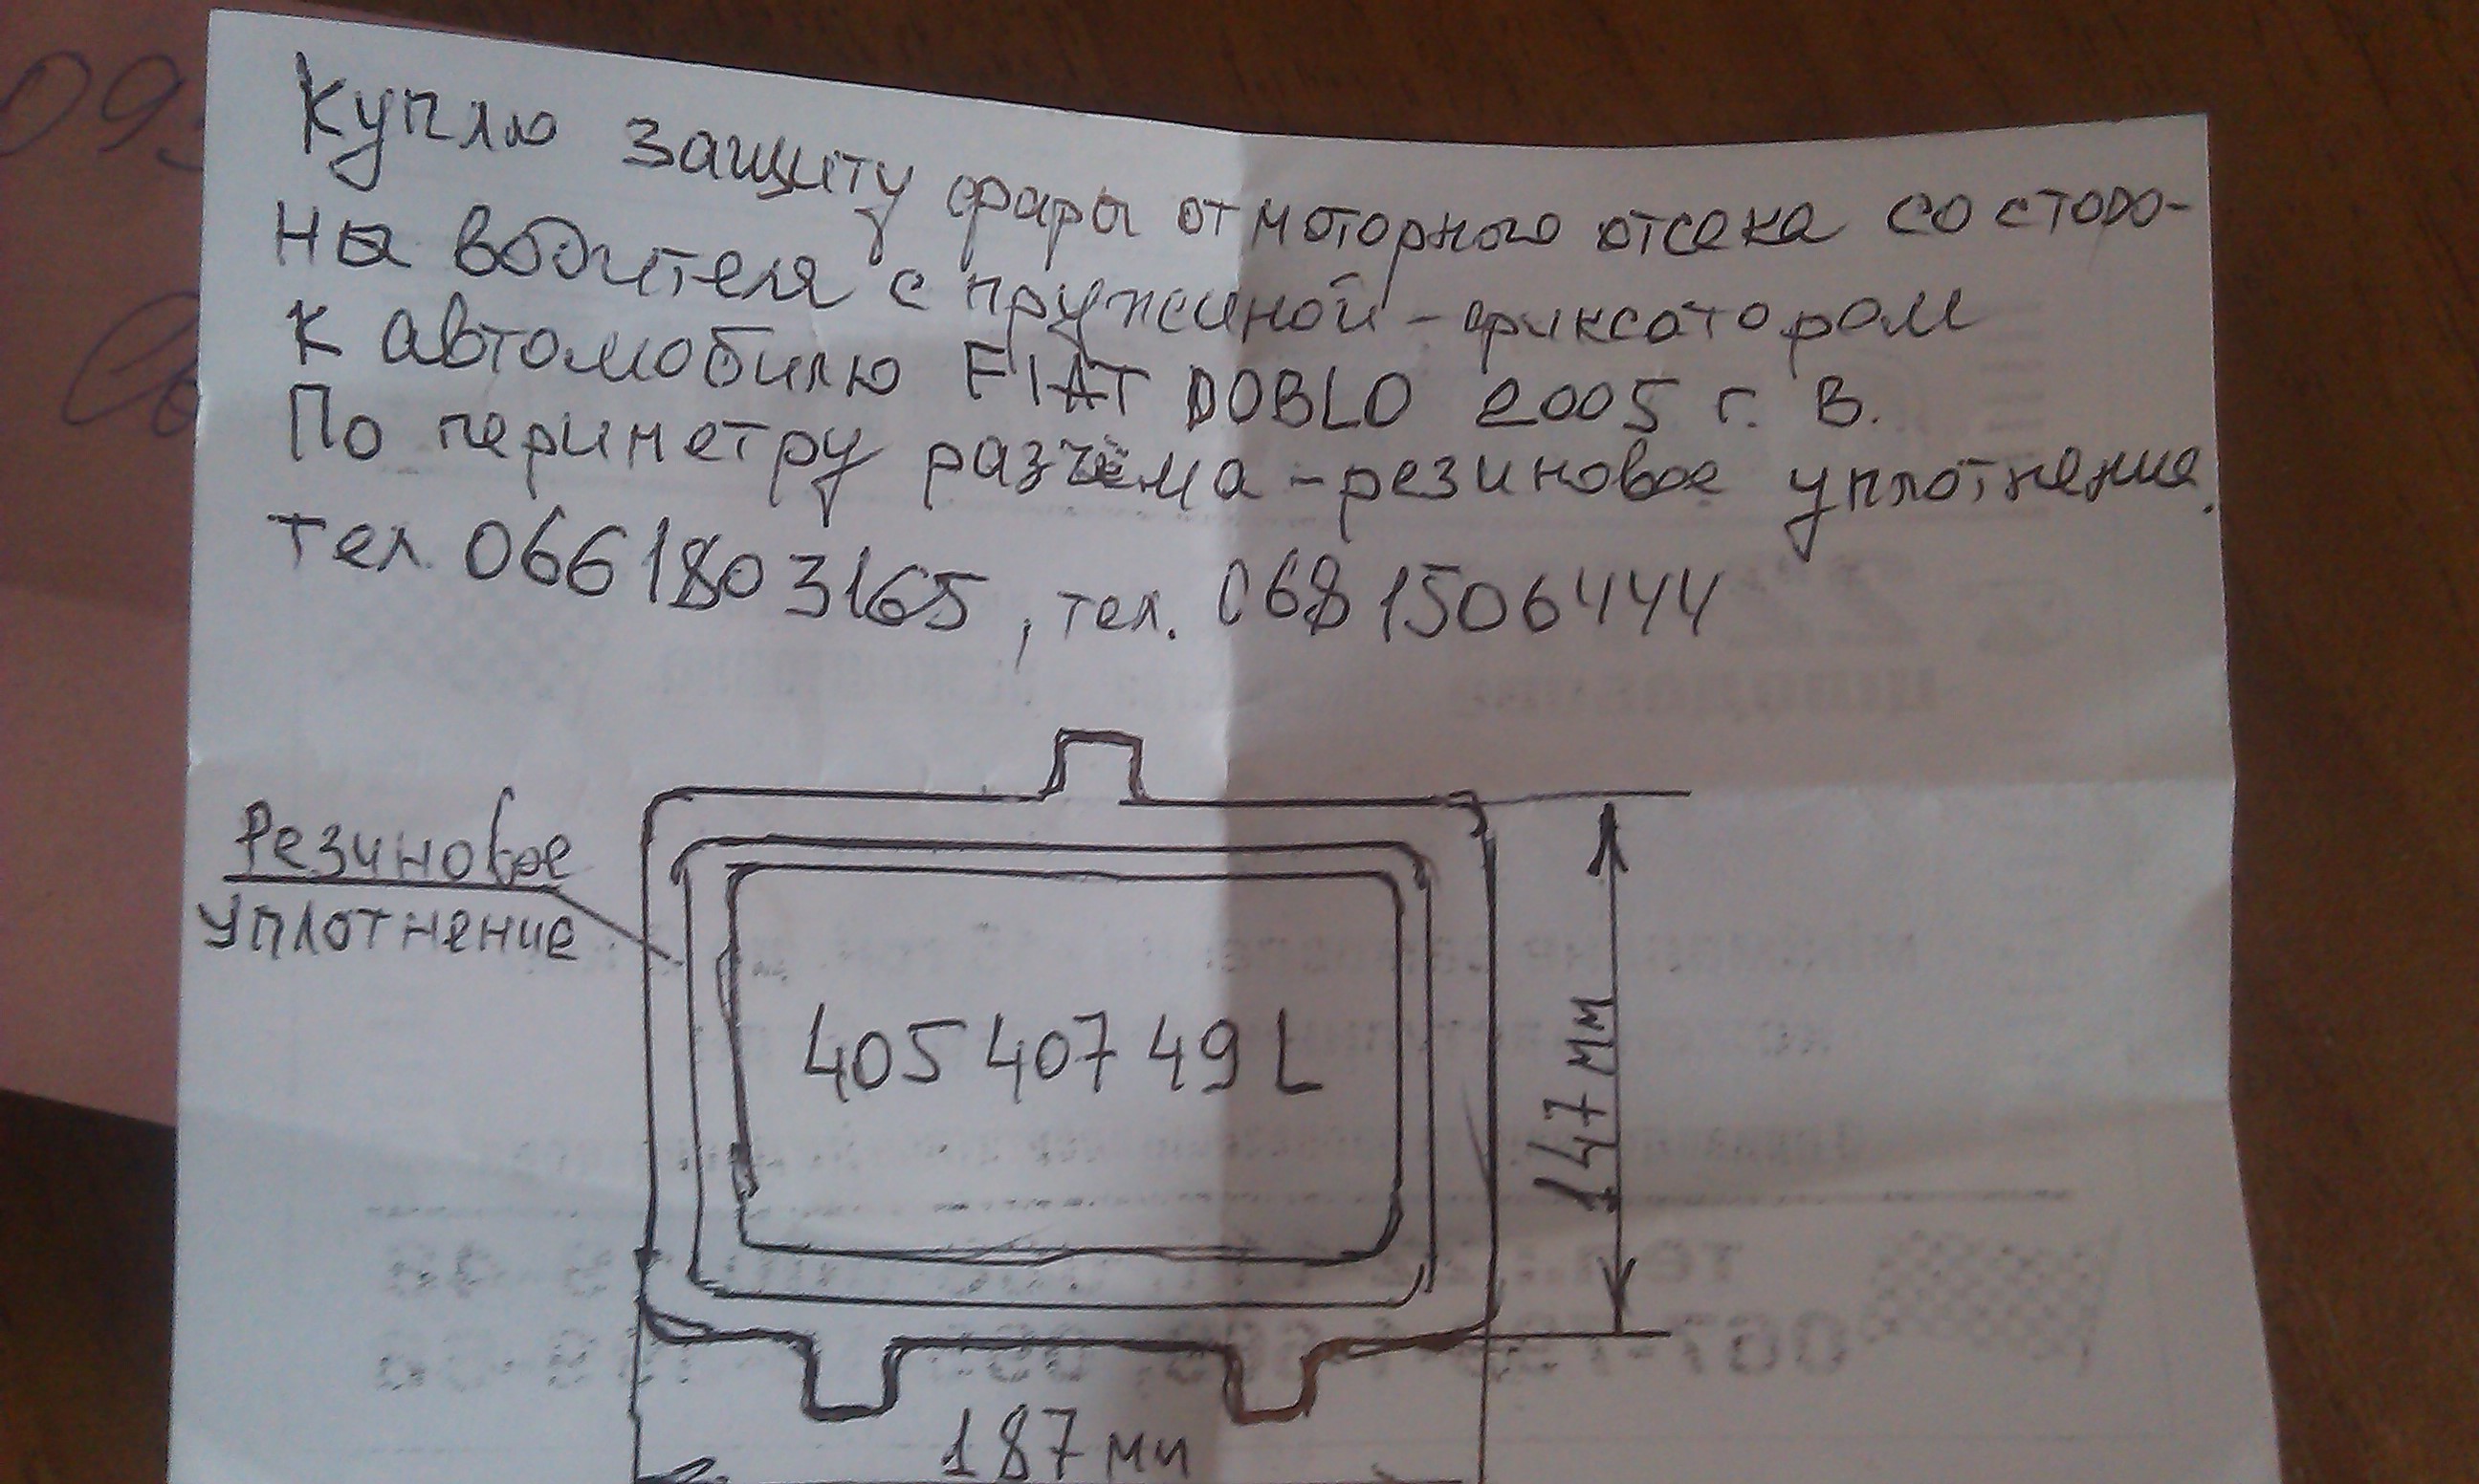 Куплю защиту фары от моторного отсека со сторо-
ны водителя с пружиной-фиксатором
к автомобилю FIAT DOBLO 2005 г. в.
По периметру разъёма - резиновое уплотнение.
тел. 0661803165, тел. 0681506444
Резиновое
уплотнение
405 407 49 L
147 мм
187 мм